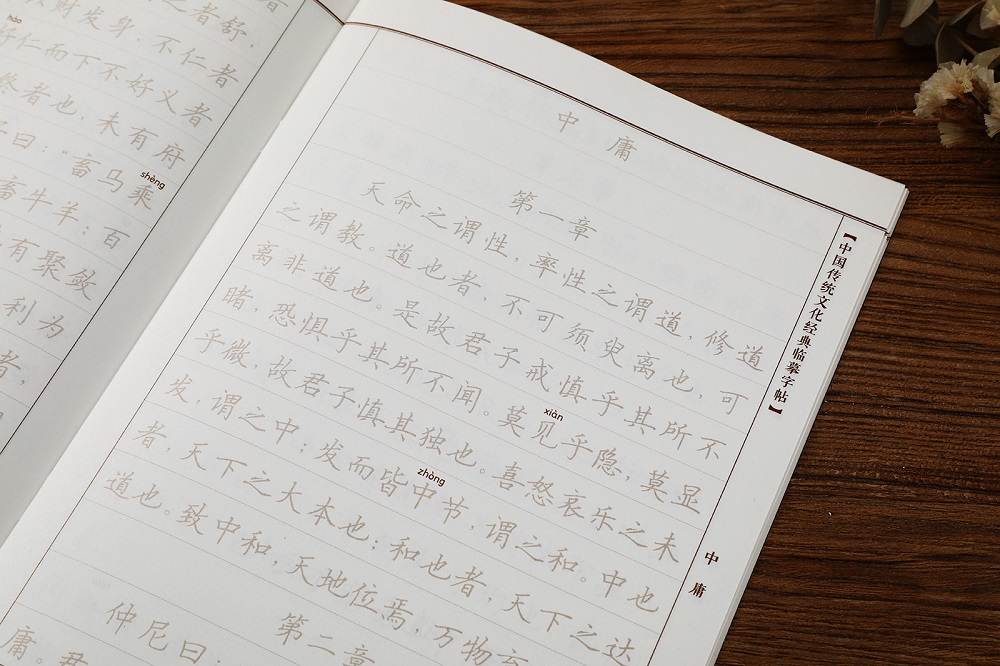 之者舒，
财发身，不仁者
hào
好仁而下不好义者
终者也，未有府
shèng
曰：“畜马乘
畜牛羊；百
有聚敛
利为
者，
中庸
第一章
天命之谓性，率性之谓道，修道
之谓教。道也者，不可须臾离也，可
离非道也。是故君子戒慎乎其所不
睹，恐惧乎其所不闻。莫见乎隐，莫显
xiàn
乎微，故君子慎其独也。喜怒哀乐之未
发，谓之中；发而皆中节，谓之和。中也
zhòng
者，天下之大本也；和也者，天下之达
道也。致中和，天地位焉，万物
第二章
仲尼曰：
庸。君
【中国传统文化经典临摹字帖】
中庸